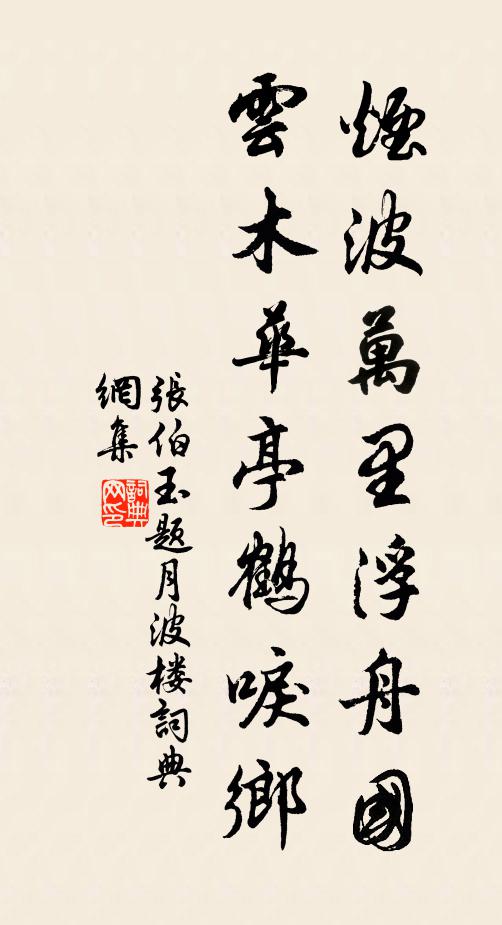 煙波萬里浮舟國
雲木華亭鶴唳鄉
張伯玉題月波楼詞典
網集
詞典
网印